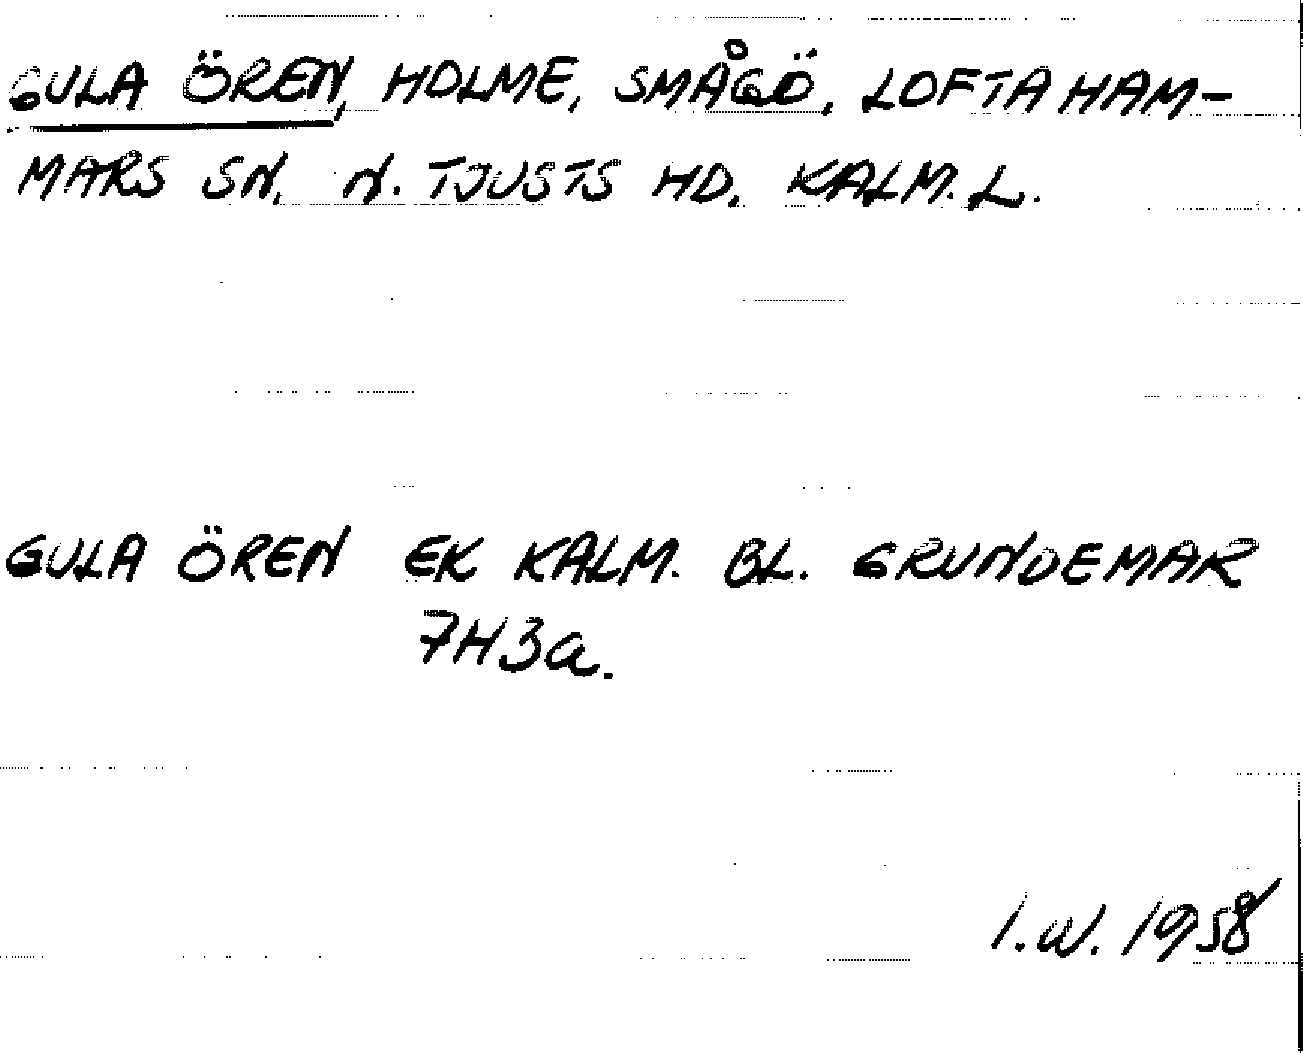 GULA ÖREN, HOLME, SMÅGÖ, LOFTAHAM-
MARS SN. N. TJUSTS HD. KALM. L.
GULA ÖREN EK KALM. BL. GRUNDEMAR
7H3a.
I.W. 1958